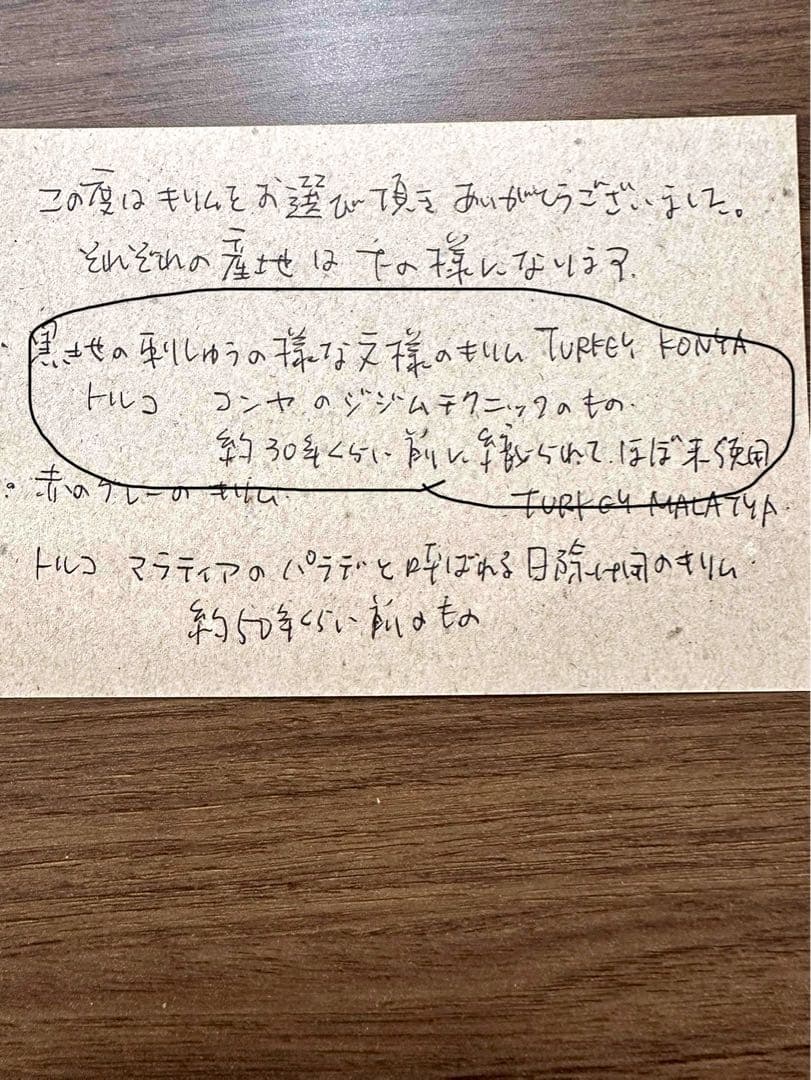 この度はキリムをお選び頂きありがとうございました。
それぞれの産地は下の様になります。
・黒地の刺しゅうの様な文様のキリム TURKEY KONYA
トルコ コンヤのジジムテクニックのもの.
約30年くらい前に織られて、ほぼ未使用
・赤のグレーのキリム. TURKEY MALATYA.
トルコ マラティアのパラデと呼ばれる日除け用のキリム
約50年くらい前のもの